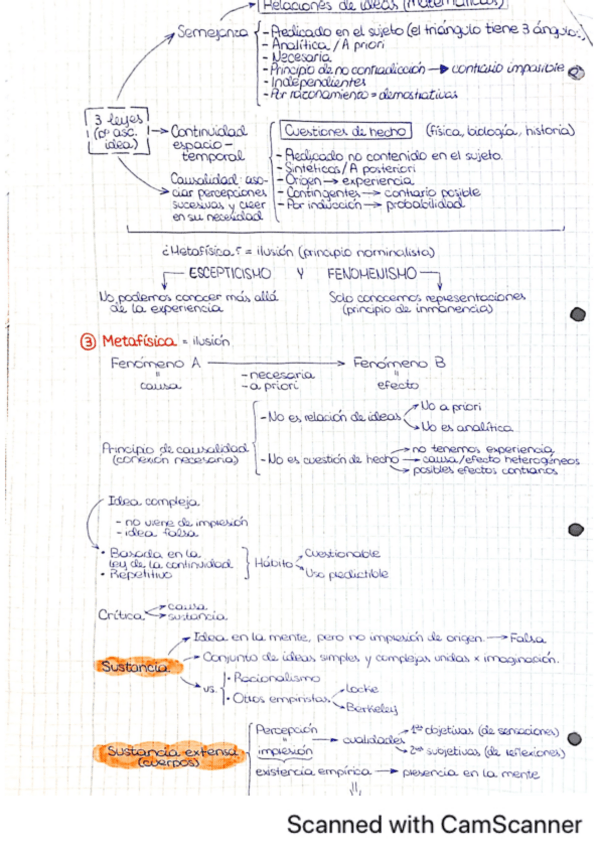 Relaciones de ideas (matemáticas)
Semejanza
- Predicado en el sujeto (el triángulo tiene 3 ángulos)
- Analítica / A priori
- Necesaria
- Principio de no contradicción → contrario imposible
- Independientes
- Por razonamiento = demostrativas
3 leyes
(pº asc.
idea)
Continuidad
espacio-
temporal
Cuestiones de hecho (física, biología, historia)
- Predicado no contenido en el sujeto.
- Sintéticos / A posteriori
- Origen → experiencia
- Contingentes → contrario posible
- Por inducción → probabilidad
Causalidad: aso-
ciar percepciones
sucesivas y creer
en su necesidad
¿Metafísica? = ilusión (principio nominalista)
ESCEPTICISMO Y FENOMENISMO
No podemos conocer más allá
de la experiencia
Solo conocemos representaciones
(principio de inmanencia)
③ Metafísica = ilusión
Fenómeno A → Fenómeno B
" "
causa
- necesaria
- a priori
efecto
Principio de causalidad
(conexión necesaria)
- No es relación de ideas
No a priori
No es analítica
- No es cuestión de hecho
no tenemos experiencia
causa/efecto heterogéneos
posibles efectos contrarios
Idea compleja
- no viene de impresión
- idea falsa
• Basada en la
ley de la continuidad
• Repetitivo
Hábito
Cuestionable
Uso predictible
Crítica
causa
sustancia
Sustancia
Idea en la mente, pero no impresión de origen. → Falsa
Conjunto de ideas simples y complejas unidas x imaginación.
vs.
• Racionalismo
• Otros empiristas
Locke
Berkeley
Sustancia extensa
(cuerpos)
Percepción
"
impresión
cualidades
1ªˢ objetivas (de sensaciones)
2ªˢ subjetivas (de reflexiones)
existencia empírica → presencia en la mente
Scanned with CamScanner